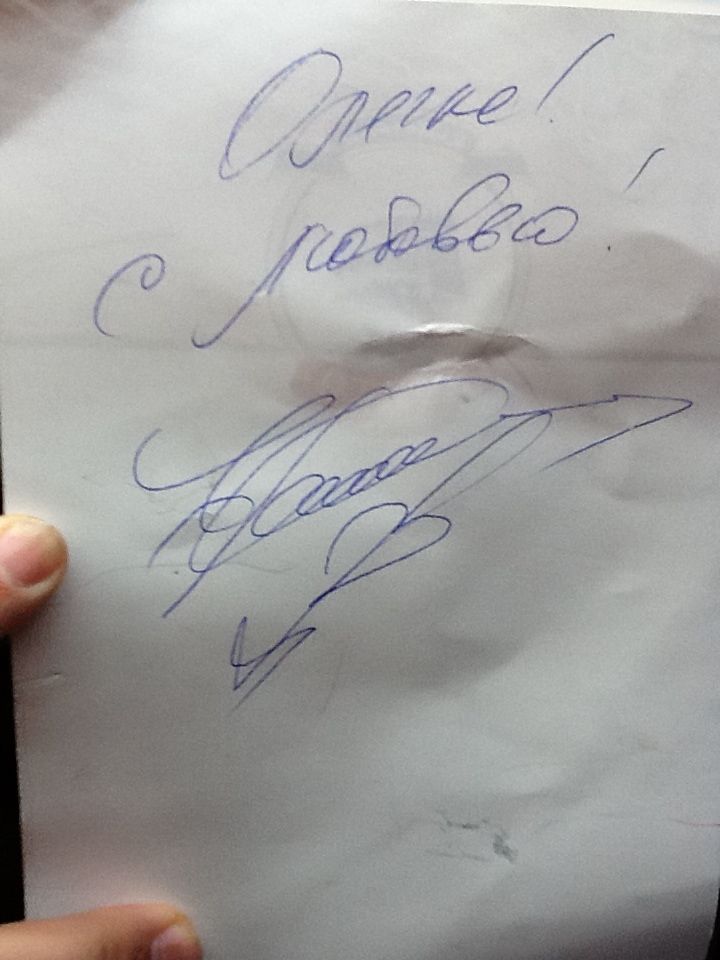 Олегке!
С любовью!